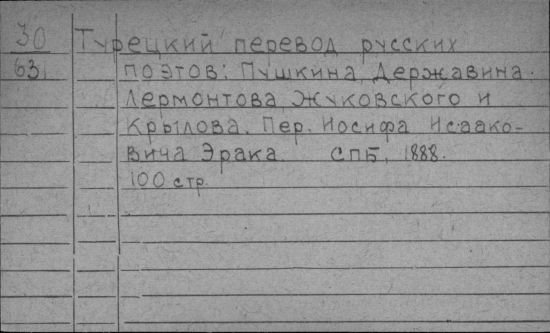 30 Турецкий перевод русских
63 поэтов: Пушкина, Державина.
Лермонтова, Жуковского и
Крылова. Пер. Иосифа Исаако-
вича Эрака СПБ, 1888.
100 стр.